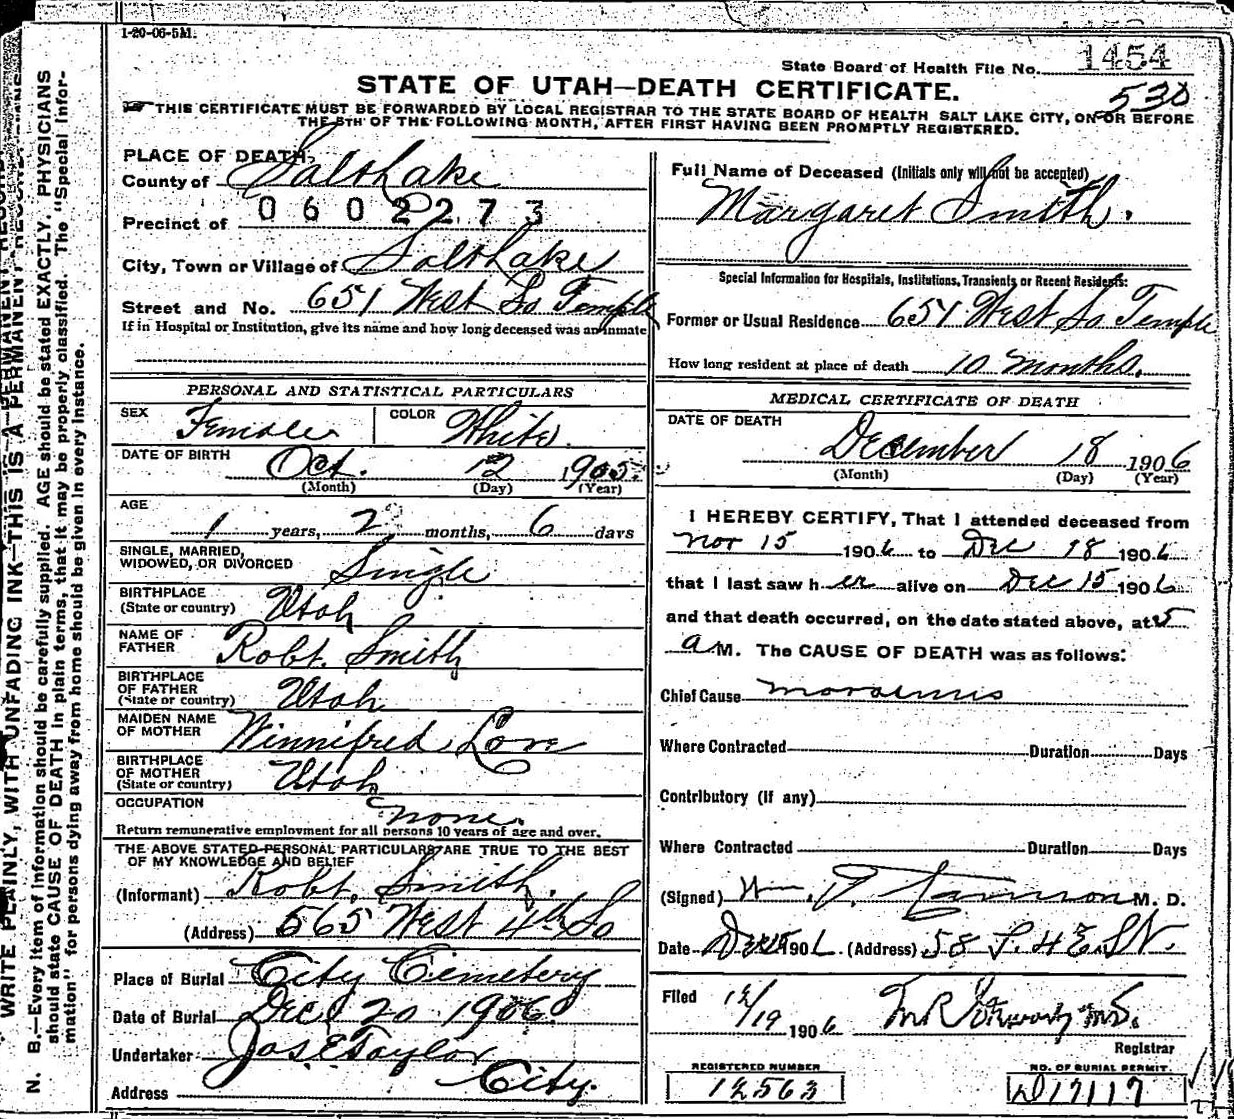 1-20-06-5M.
State Board of Health File No. 1454
STATE OF UTAH—DEATH CERTIFICATE.
530
THIS CERTIFICATE MUST BE FORWARDED BY LOCAL REGISTRAR TO THE STATE BOARD OF HEALTH SALT LAKE CITY, ON OR BEFORE
THE 5TH OF THE FOLLOWING MONTH, AFTER FIRST HAVING BEEN PROMPTLY REGISTERED.
PLACE OF DEATH,
County of Salt Lake
0602273
Precinct of
City, Town or Village of Salt Lake
Street and No. 651 West So Temple
If in Hospital or Institution, give its name and how long deceased was an inmate
PERSONAL AND STATISTICAL PARTICULARS
SEX Female COLOR White
DATE OF BIRTH Oct. 12 1905.
(Month) (Day) (Year)
AGE
1 years, 2 months, 6 days
SINGLE, MARRIED,
WIDOWED, OR DIVORCED Single
BIRTHPLACE
(State or country) Utah
NAME OF
FATHER Robt. Smith
BIRTHPLACE
OF FATHER
(State or country) Utah
MAIDEN NAME
OF MOTHER Winnifred Love
BIRTHPLACE
OF MOTHER
(State or country) Utah
OCCUPATION none.
Return remunerative employment for all persons 10 years of age and over.
THE ABOVE STATED PERSONAL PARTICULARS ARE TRUE TO THE BEST
OF MY KNOWLEDGE AND BELIEF
(Informant) Robt. Smith.
(Address) 565 West 4th So
Place of Burial City Cemetery
Date of Burial Dec 20 1906
Undertaker Jos E Taylor
Address City.
Full Name of Deceased (Initials only will not be accepted)
Margaret Smith.
Special Information for Hospitals, Institutions, Transients or Recent Residents:
Former or Usual Residence 651 West So Temple
How long resident at place of death 10 months.
MEDICAL CERTIFICATE OF DEATH
DATE OF DEATH
December 18 1906
(Month) (Day) (Year)
I HEREBY CERTIFY, That I attended deceased from
Nov 15 1906 to Dec 18 1906
that I last saw h er alive on Dec 15 1906
and that death occurred, on the date stated above, at 5
a M. The CAUSE OF DEATH was as follows:
Chief Cause
Where Contracted Duration Days
Contributory (if any)
Where Contracted Duration Days
(Signed) Wm. M. D.
Date Dec 1906 (Address) 58 S. 4 E. St.
Filed 12/19 1906
Registrar
REGISTERED NUMBER
12563
NO. OF BURIAL PERMIT
D17117
WRITE PLAINLY, WITH UNFADING INK—THIS IS A PERMANENT RECORD
N. B.—Every item of information should be carefully supplied. AGE should be stated EXACTLY. PHYSICIANS
should state CAUSE OF DEATH in plain terms, that it may be properly classified. The "Special Infor-
mation" for persons dying away from home should be given in every instance.